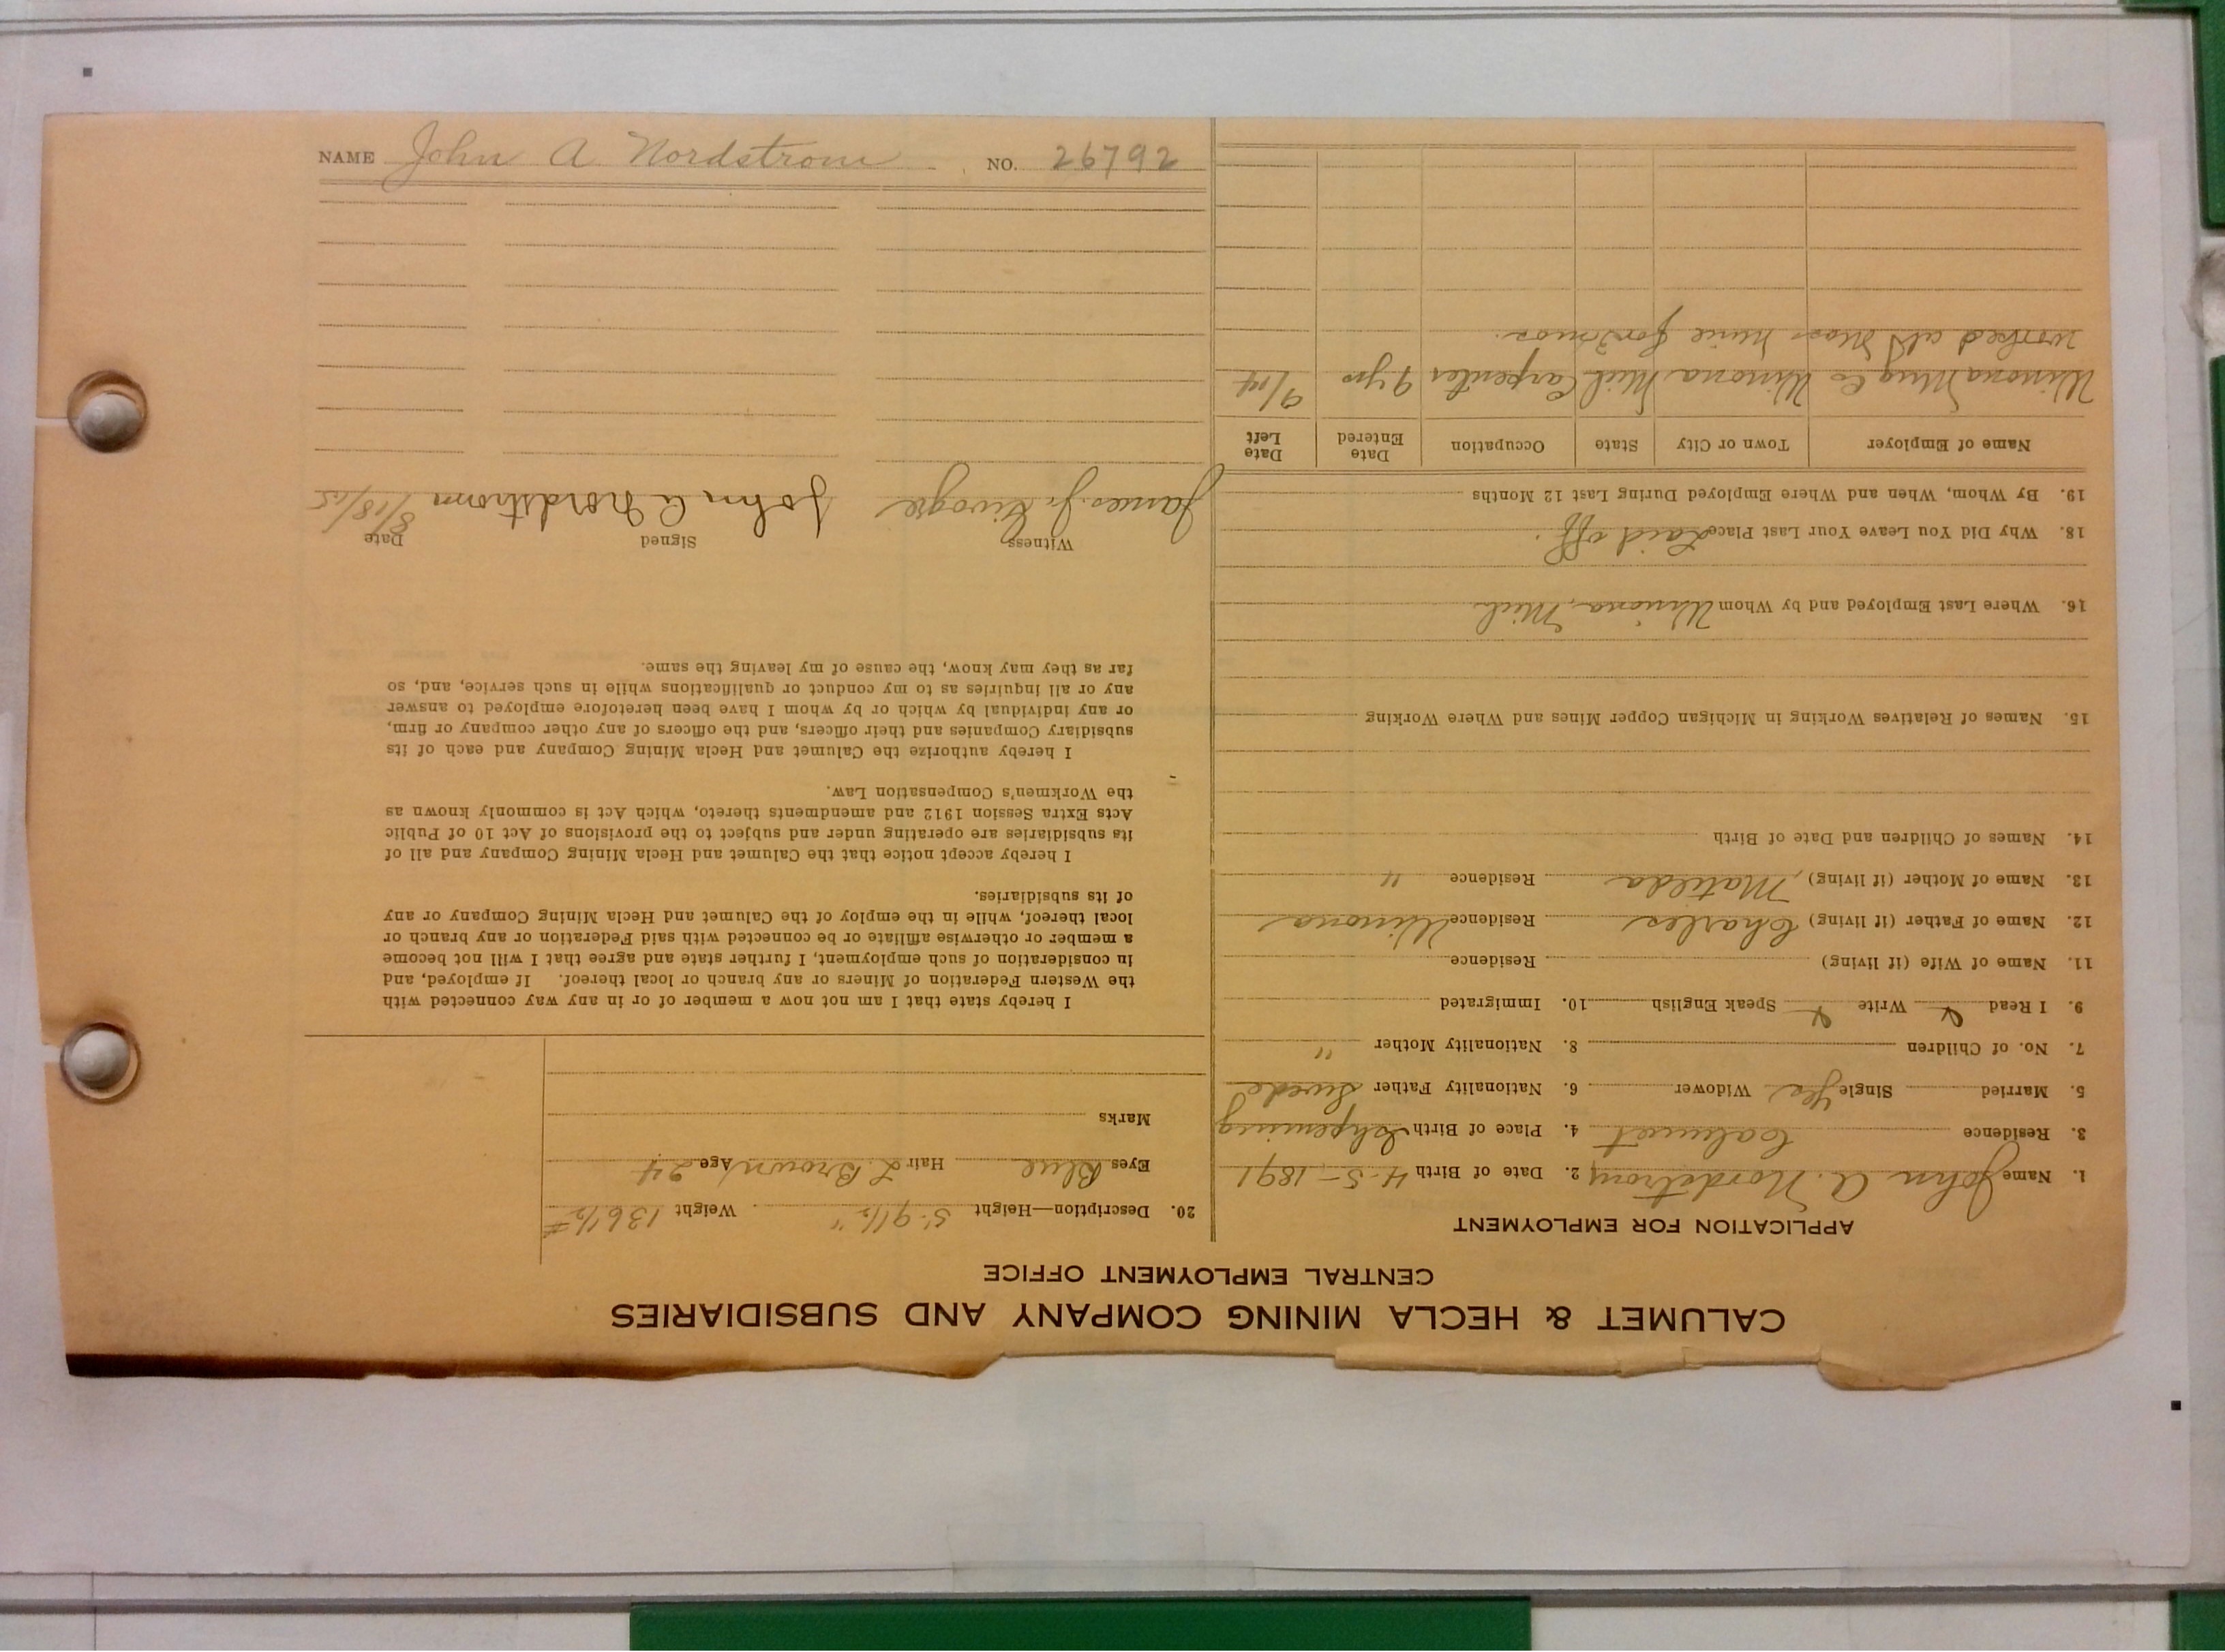 CALUMET & HECLA MINING COMPANY AND SUBSIDIARIES
CENTRAL EMPLOYMENT OFFICE
APPLICATION FOR EMPLOYMENT
1. Name John A. Nordstrom 2. Date of Birth 4-5-1891
3. Residence Calumet 4. Place of Birth Ishpeming
5. Married Single Yes Widower 6. Nationality Father Swede
7. No. of Children 8. Nationality Mother "
9. I Read Write Speak English 10. Immigrated
11. Name of Wife (if living) Residence
12. Name of Father (if living) Charles Residence Winona
13. Name of Mother (if living) Matilda Residence "
14. Names of Children and Date of Birth
15. Names of Relatives Working in Michigan Copper Mines and Where Working
16. Where Last Employed and by Whom Winona, Mich
18. Why Did You Leave Your Last Place Laid off.
19. By Whom, When and Where Employed During Last 12 Months
Name of Employer Town or City State Occupation Date Entered Date Left
Winona Mng Co Winona Mich Carpenter 9 yrs 9/14
worked at Mass Mine for 3 mos.
20. Description—Height 5' 9 1/2" Weight 136 1/2 #
Eyes Blue Hair L. Brown Age 24
Marks
I hereby state that I am not now a member of or in any way connected with
the Western Federation of Miners or any branch or local thereof. If employed, and
in consideration of such employment, I further state and agree that I will not become
a member or otherwise affiliate or be connected with said Federation or any branch or
local thereof, while in the employ of the Calumet and Hecla Mining Company or any
of its subsidiaries.
I hereby accept notice that the Calumet and Hecla Mining Company and all of
its subsidiaries are operating under and subject to the provisions of Act 10 of Public
Acts Extra Session 1912 and amendments thereto, which Act is commonly known as
the Workmen's Compensation Law.
I hereby authorize the Calumet and Hecla Mining Company and each of its
subsidiary Companies and their officers, and the officers of any other company or firm,
or any individual by which or by whom I have been heretofore employed to answer
any or all inquiries as to my conduct or qualifications while in such service, and, so
far as they may know, the cause of my leaving the same.
Witness Signed Date
James J. John A Nordstrom 8/18/15
NAME John A Nordstrom NO. 26792